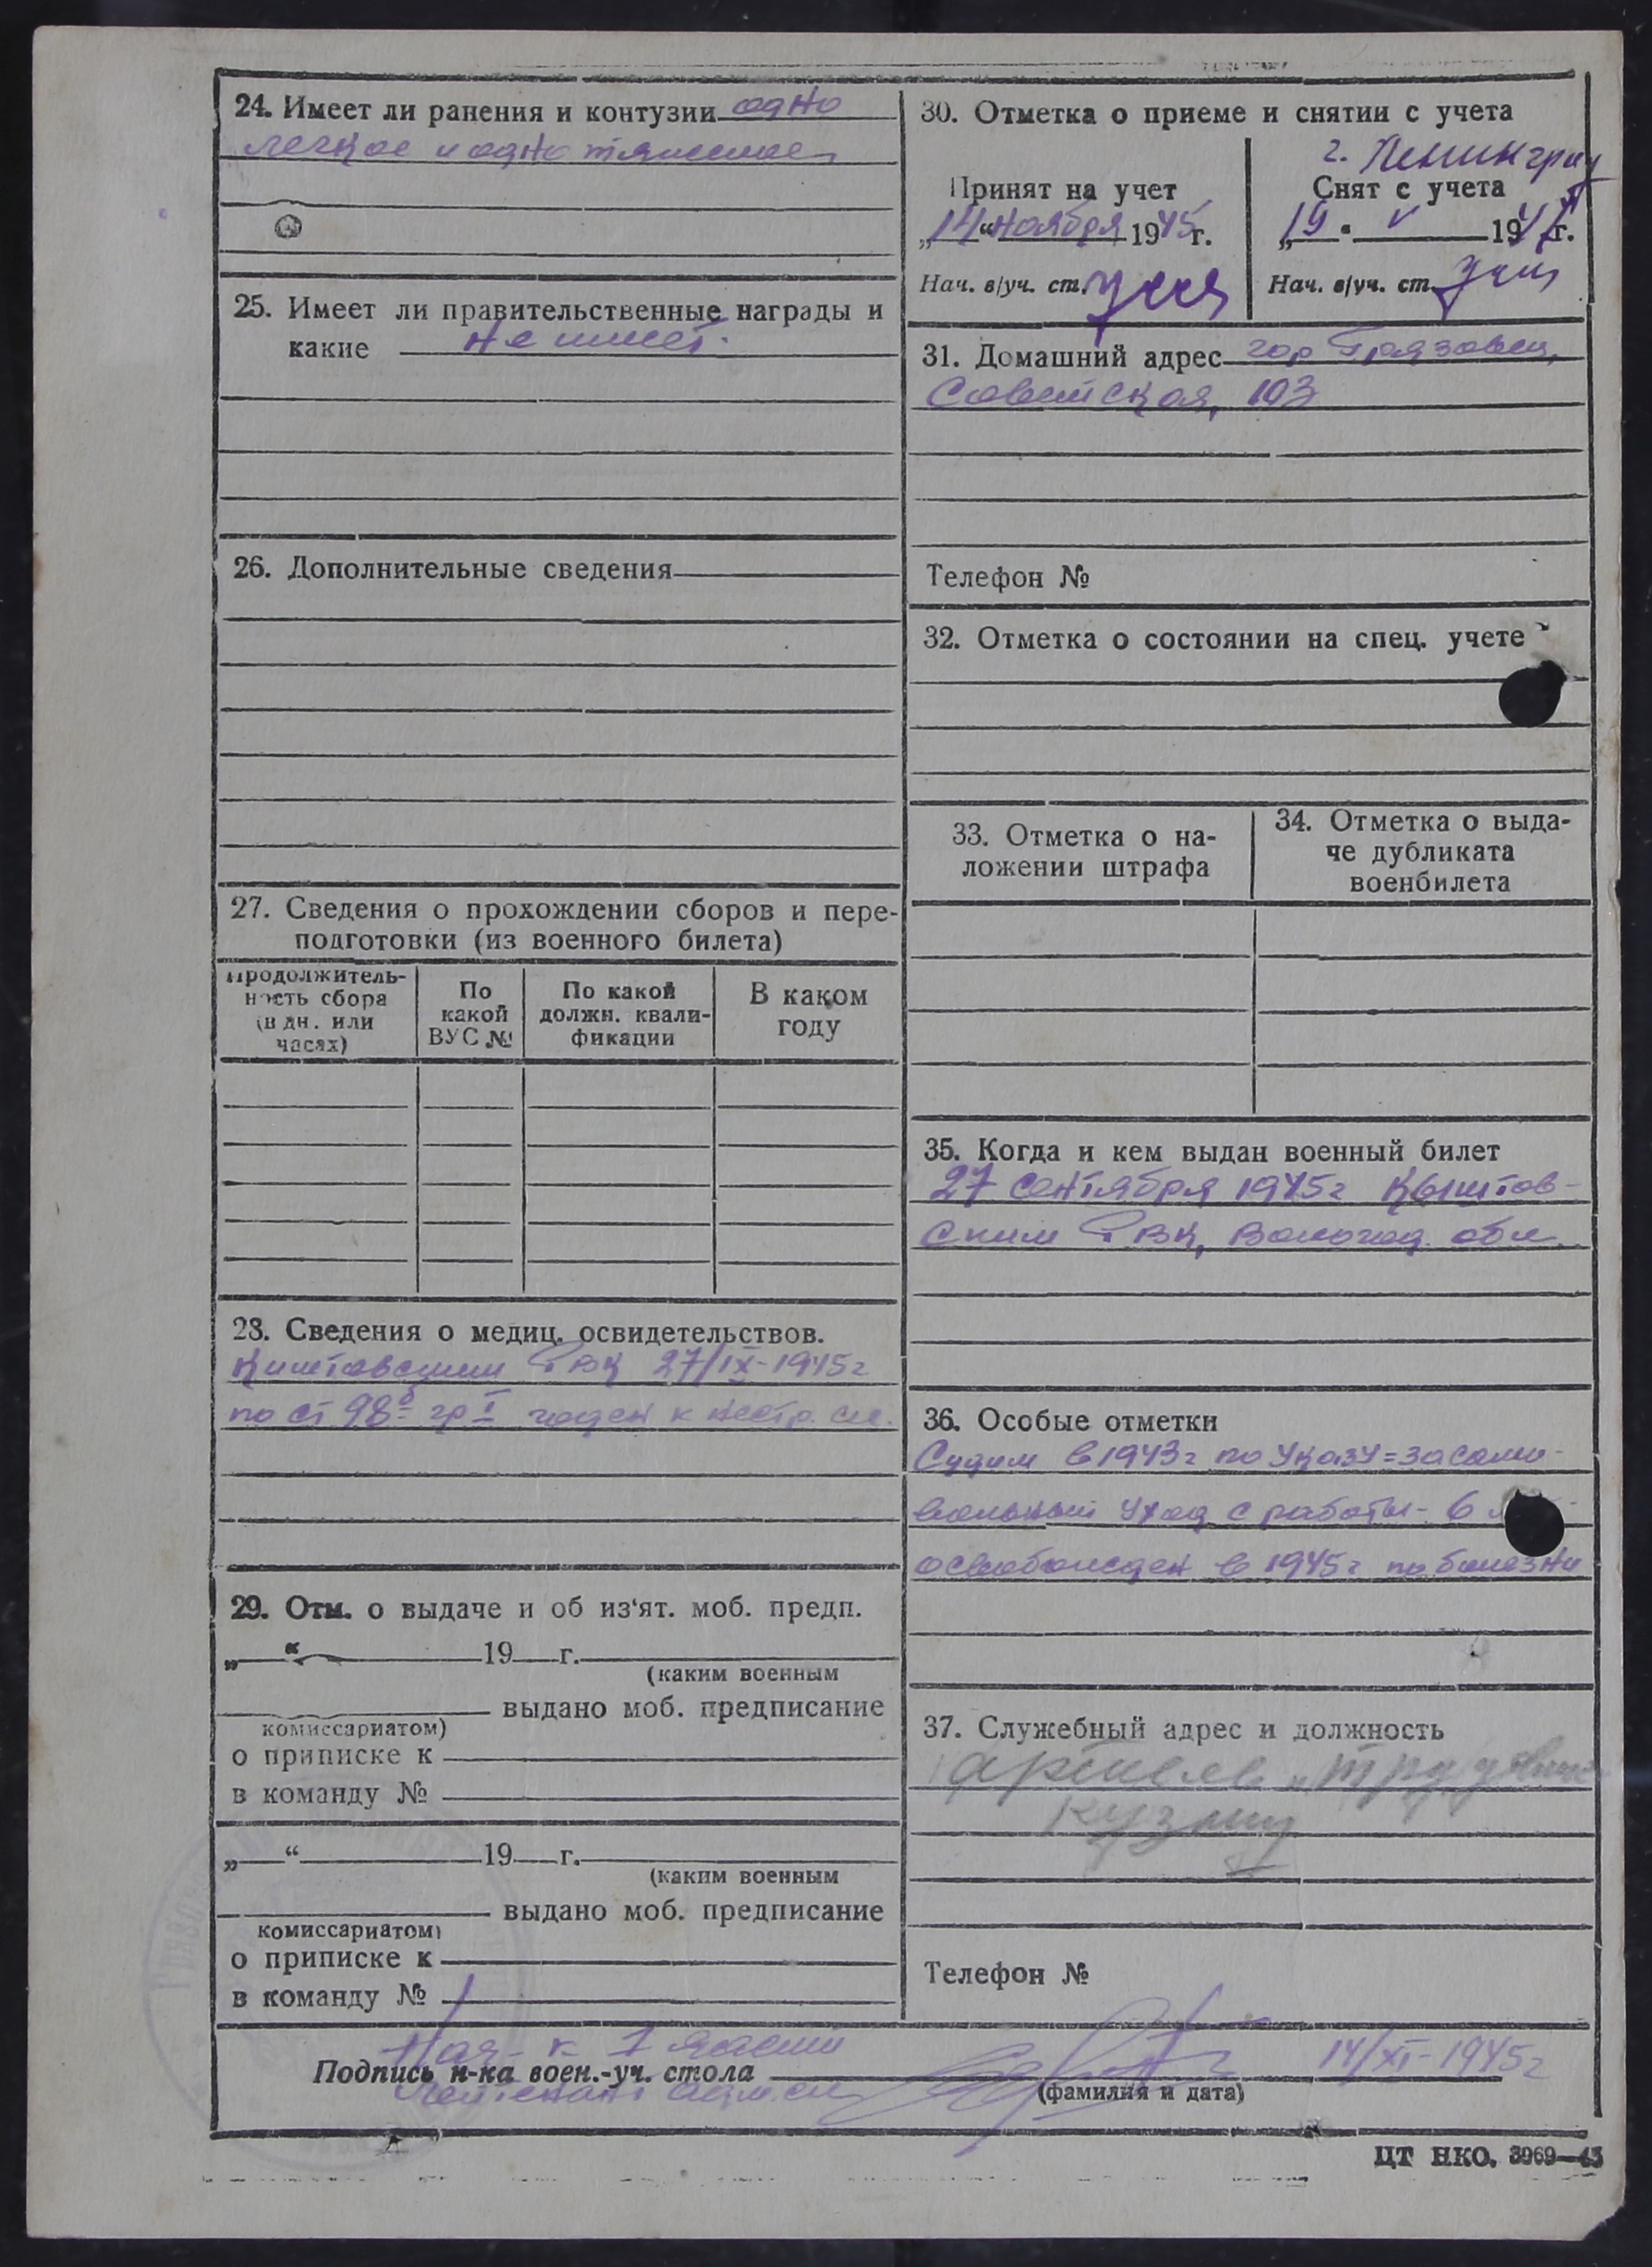 24. Имеет ли ранения и контузии одно
легкое и одно тяжелое
25. Имеет ли правительственные награды и
какие не имеет.
26. Дополнительные сведения
27. Сведения о прохождении сборов и пере-
подготовки (из военного билета)
Продолжитель-
ность сбора
(в дн. или
часах)
По
какой
ВУС №
По какой
должн. квали-
фикации
В каком
году
28. Сведения о медиц. освидетельствов.
РВК 27/IX-1945г
по ст 98б гр I годен к нестр. сл.
29. Отм. о выдаче и об из'ят. моб. предп.
„ “ 19 г.
(каким военным
выдано моб. предписание
комиссариатом)
о приписке к
в команду №
„ “ 19 г.
(каким военным
выдано моб. предписание
комиссариатом)
о приписке к
в команду №
30. Отметка о приеме и снятии с учета
г. Ленинград
Принят на учет
„14“ ноября 1945г.
Нач. в/уч. ст.
Снят с учета
„19 “ V 194 г.
Нач. в/уч. ст.
31. Домашний адрес гор Грязовец,
Советская, 103
Телефон №
32. Отметка о состоянии на спец. учете
33. Отметка о на-
ложении штрафа
34. Отметка о выда-
че дубликата
военбилета
35. Когда и кем выдан военный билет
27 сентября 1945г Кыштов-
ским РВК, Вологод. обл.
36. Особые отметки
Судим в 1943г по Указу = за само-
вольный уход с работы - 6
освобожден в 1945г по болезни
37. Служебный адрес и должность
артель „
кузнец
Телефон №
Нач- к 1 части
Подпись н-ка воен.-уч. стола
лейтенант адм. сл
14/XI-1945г
(фамилия и дата)
ЦТ НКО. 3969—43